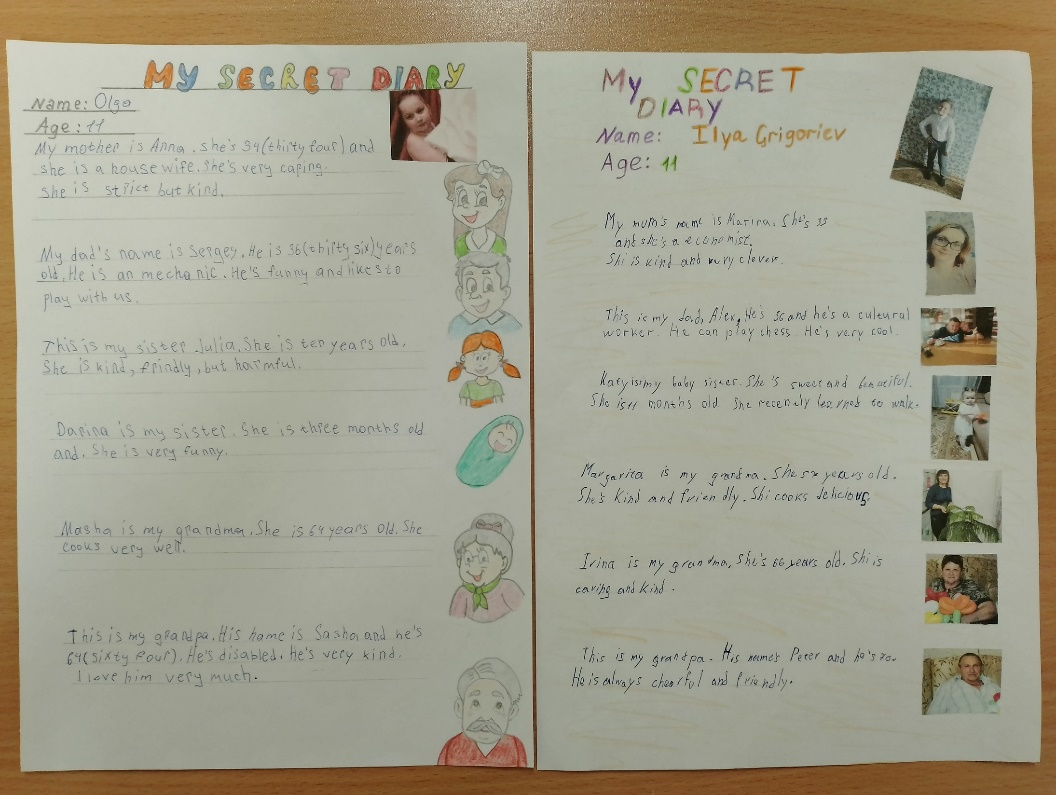 MY SECRET DIARY
Name: Olga
Age: 11
My mother is Anna. She's 34(thirty four) and
she is a house wife. She's very caring.
She is strict but kind.
My dad's name is Sergey. He is 36(thirty six)years
old. He is an mechanic. He's funny and likes to
play with us.
This is my sister Julia. She is ten years old.
She is kind, frindly, but harmful.
Darina is my sister. She is three months old
and. She is very funny.
Masha is my grandma. She is 64 years old. She
cooks very well.
This is my grandpa. His name is Sasha and he's
64(sixty four). He's disabled. He's very kind.
I love him very much.
My SECRET
DIARY
Name: Ilya Grigoriev
Age: 11
My mum's name is Marina. She's
and she's a economist.
Shi is kind and very clever.
This is my dad, Alex. He's 36 and he's a cultural
worker. He can play chess. He's very cool.
is my baby sister. She's sweet and beautiful.
She is 11 months old. She recently learned to walk.
Margarita is my grandma. She years old.
She's kind and friendly. Shi cooks delicious.
Irina is my grandma. She's 66 years old. Shi is
caring and kind.
This is my grandpa. His name's Peter and he's 70.
He is always chearful and friendly.